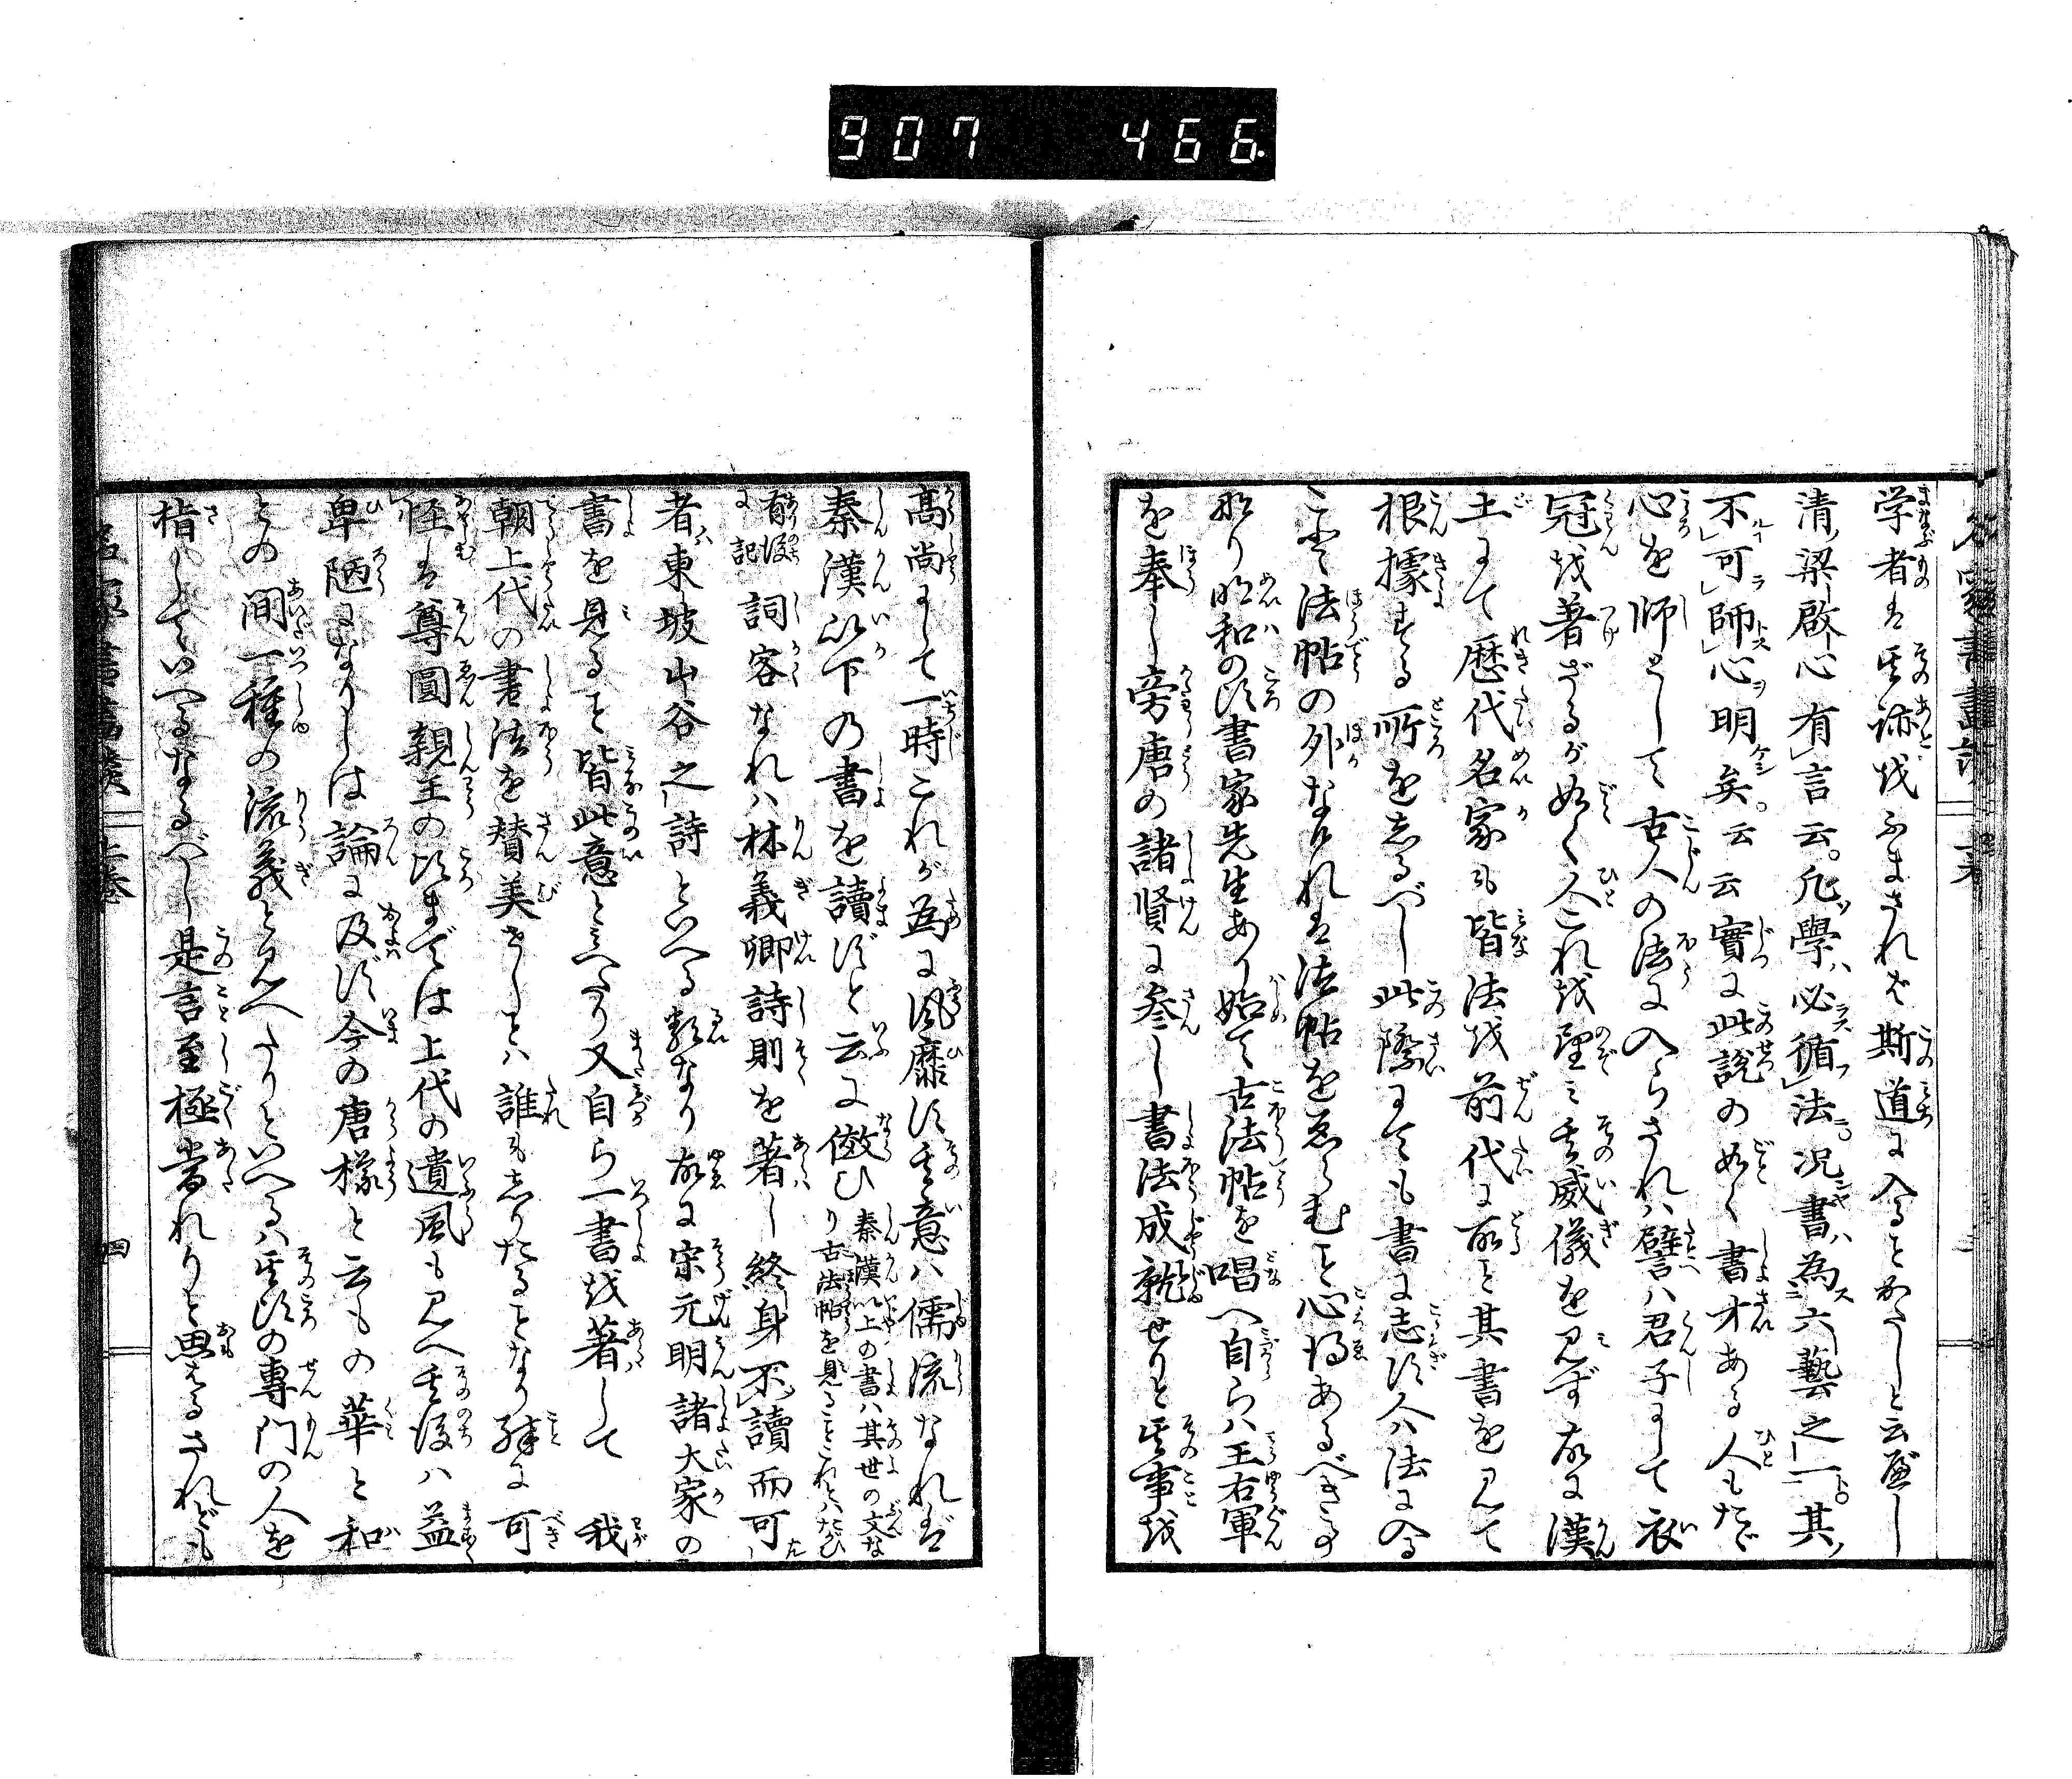 907 466
学者は其跡を不まされば斯道に入ることかたしと云べし
清梁啟心有言云。凡學必循法況書為六藝之一。其
不可師心明矣。云云實に此説の如く書才ある人もたゞ
心を師として古人の法に入らされハ譬ハ君子にして衣
冠を著ざるが如く人これを望ミ其威儀を見ず故に漢
土にて歴代名家も皆法を前代に取て其書を見て
根據する所をしるべし此際にても書に志す人ハ法に入る
こと法帖の外なければ法帖をゑらむこと心得あるべき事
なり明和の頃書家先生あり始て古法帖を唱へ自らハ王右軍
を奉し旁唐の諸賢に参し書法成就せりと其事を
高尚にして一時これが為に風靡す其意ハ儒流なれば
秦漢以下の書を讀ずと云に傚ひ
秦漢以上の書ハ其世の文な
り古法帖を見ることこれハたひ
有後
に記
詞客なれハ林義卿詩則を著し終身不讀而可
者東坡山谷之詩といへる類なり故に宋元明諸大家の
書を見るに皆此意とミへたり又自ら一書を著して 我
朝上代の書法を賛美せしとハ誰もしりたることなり殊に可
怪は尊圓親王の頃までは上代の遺風も見へ其後ハ益
卑陋になりしは論に及ず今の唐様と云もの華と和
との間一種の流義と見へたりといへるハ其頃の專門の人を
指していへるなるべし是言至極當れりと思はるされども
四